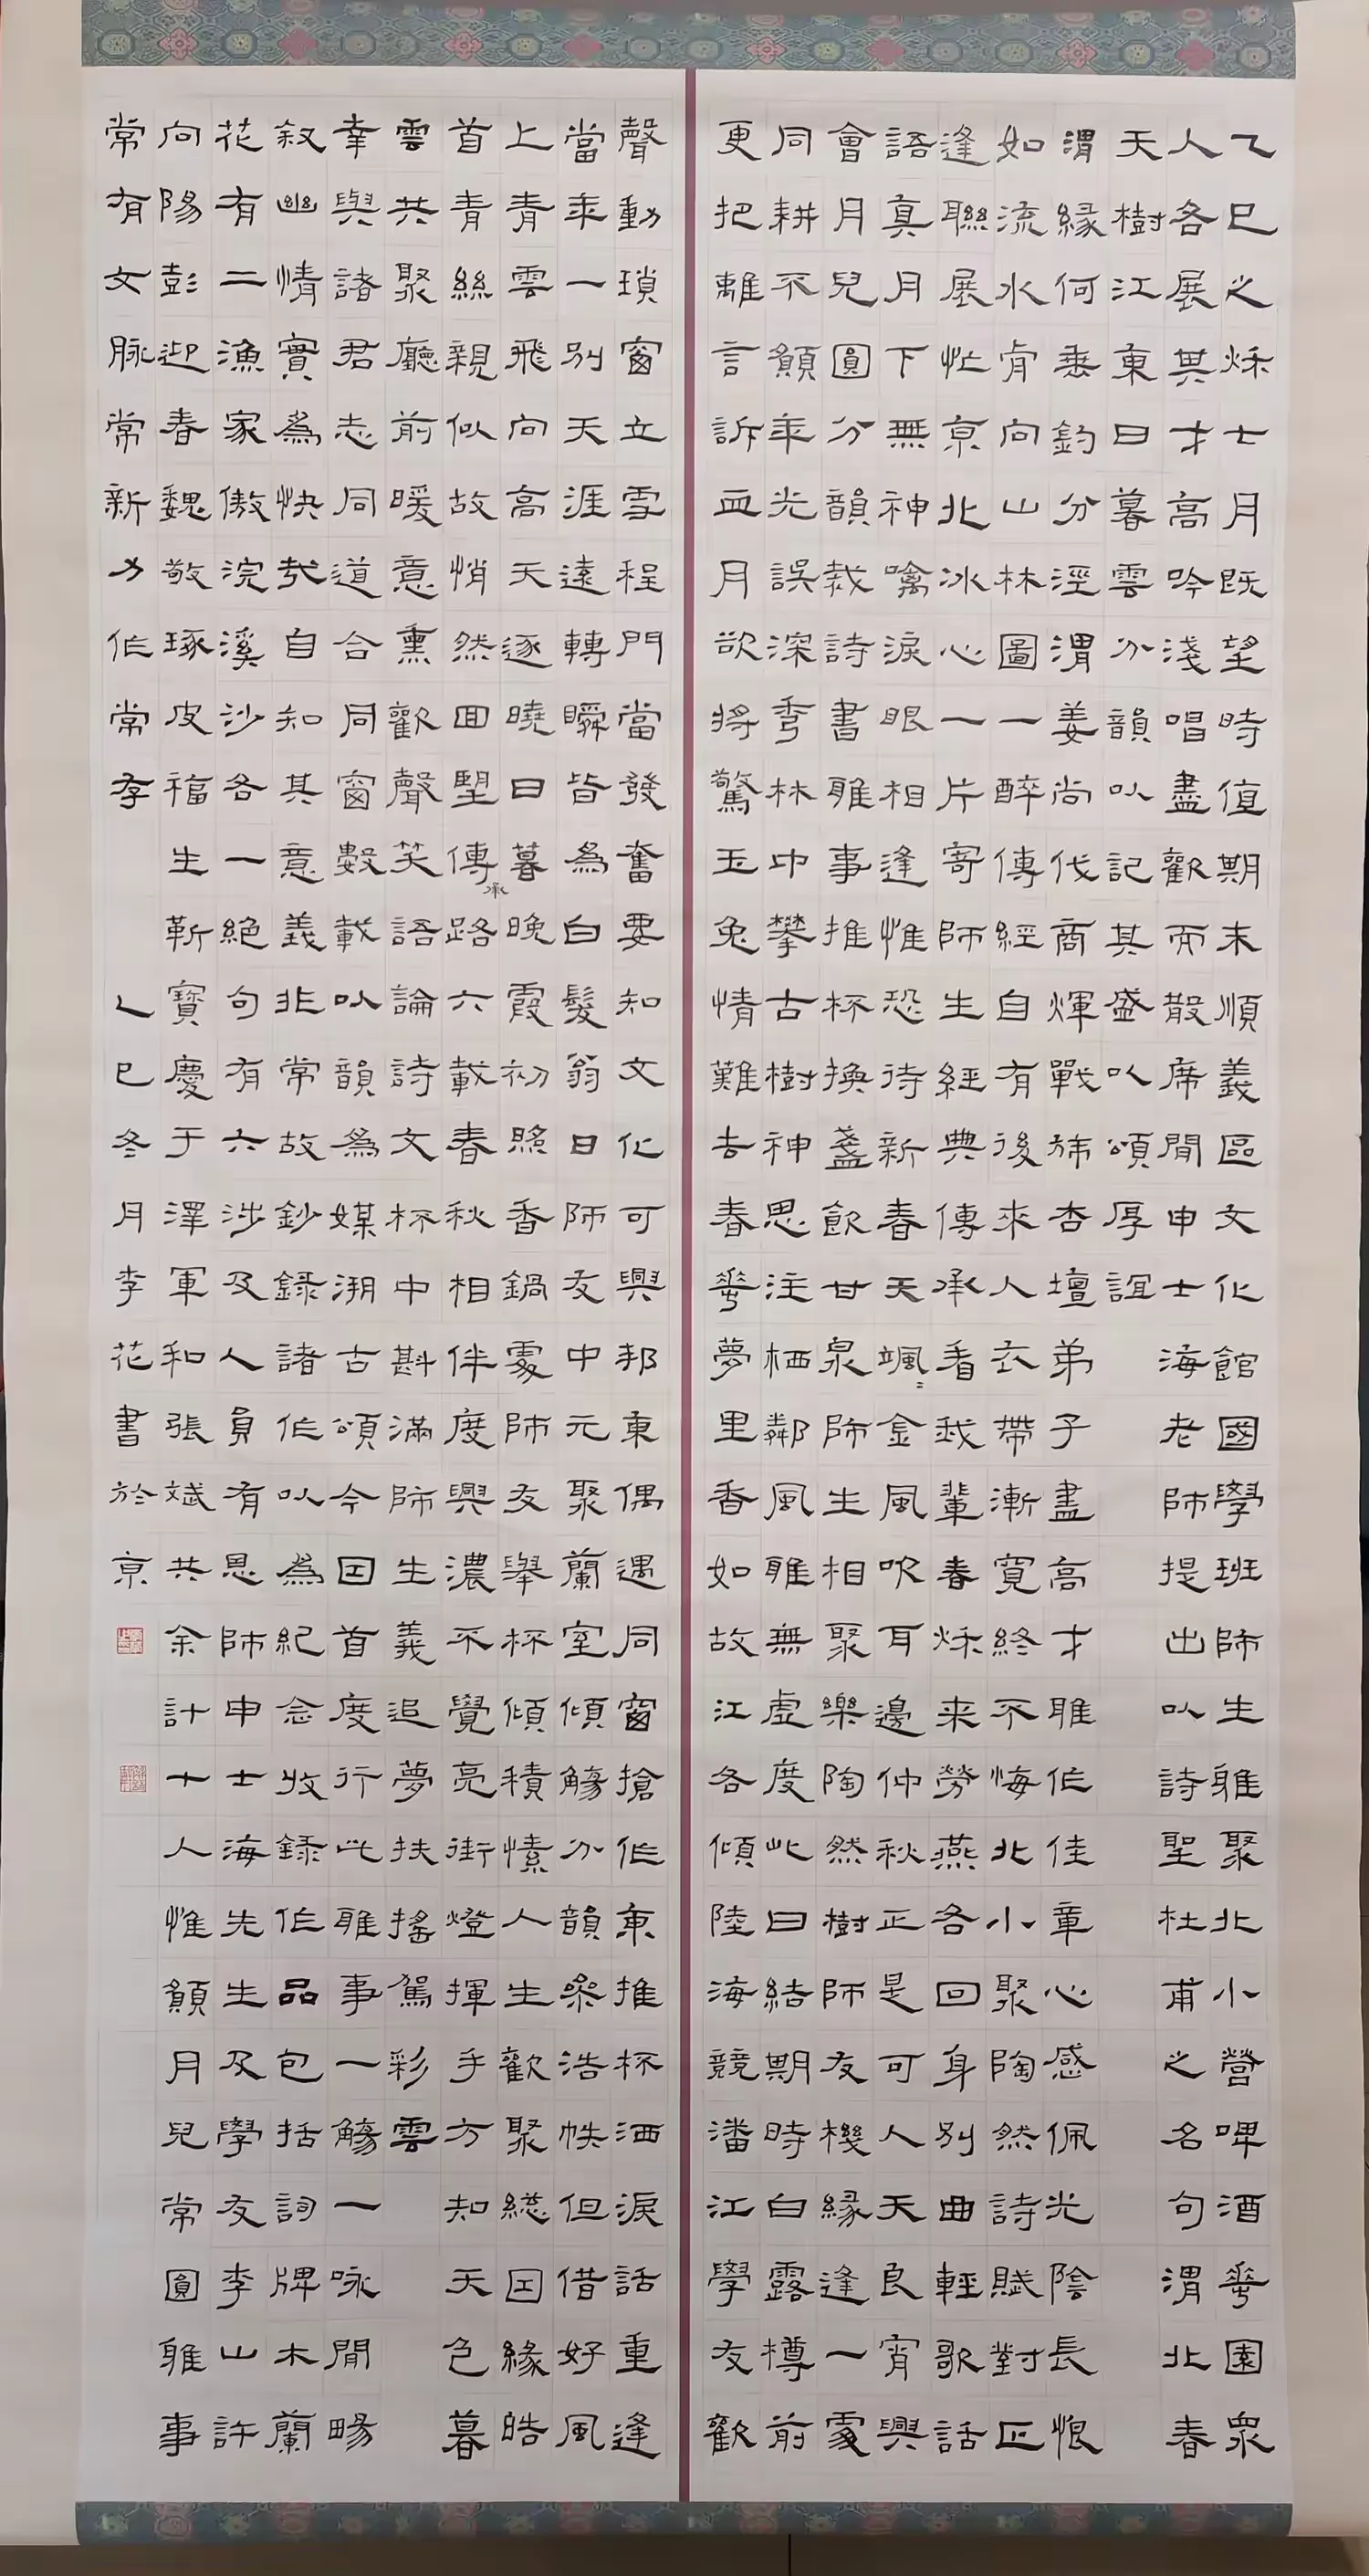 乙巳之秌七月既望時值期末順義區文化館國學班師生雅聚北小營啤酒華園衆
人各展其才高吟淺唱盡歡而散席間申士海老師提出以詩聖杜甫之名句渭北春
天樹江東日暮雲分韻以記其盛以頌厚誼
渭緣何垂釣分涇渭姜尚伐商煇戰斾杏壇弟子盡高才雅作佳章心感佩光陰長恨
如流水肯向山林圖一醉傳經自有後來人衣帶漸寬終不悔北小聚陶然詩賦對匹
逢聯展忙京北冰心一片寄師生經典傳承看我輩春秌来勞燕各回身別曲輕歌話
語真月下無神噙淚眼相逢惟恐待新春天颯〻金風吹耳邊仲秋正是可人天良宵興
會月兒圓分韻裁詩書雅事推杯換盞飲甘泉師生相聚樂陶然樹師友機緣逢一處
同耕不顧年光誤深秀林中攀古樹神思注栖鄰風雅無虛度此日結期時白露樽前
更把離言訴血月欲將驚玉兔情難去春華夢里香如故江各傾陸海競潘江學友歡
聲動瑣窗立雪程門當發奮要知文化可興邦東偶遇同窗搶作東推杯洒淚話重逢
當年一別天涯遠轉瞬皆為白髮翁日師友中元聚蘭室傾觴分韻參浩帙但借好風
上青雲飛向高天逐曉日暮晚霞初照香鍋處師友舉杯傾積愫人生歡聚總因緣皓
首青絲親似故悄然回望傳承路六載春秋相伴度興濃不覺亮街燈揮手方知天色暮
雲共聚廳前暖意熏歡聲笑語論詩文杯中斟滿師生義追夢扶搖駕彩雲
幸與諸君志同道合同窗數載以韻為媒溯古頌今回首度行此雅事一觴一咏間暢
叙幽情實為快哉自知其意義非常故鈔錄諸作以為紀念收錄作品包括詞牌木蘭
花有二漁家傲浣溪沙各一絕句有六涉及人員有恩師申士海先生及學友李山許
向陽彭迎春魏敬琢皮福生靳寶慶于澤軍和張斌共余計十人惟願月兒常圓雅事
常有文脉常新力作常存 乙巳冬月李花書於京